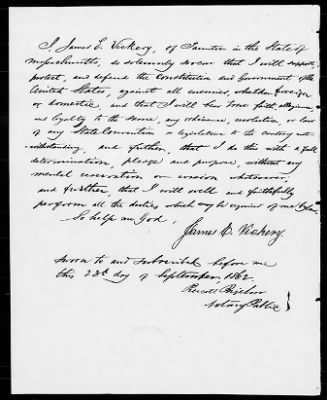 I, James E. Vickery, of Taunton in the State of
Massachusetts, do solemnly swear that I will support,
protect, and defend the Constitution and Government of the
United States, against all enemies, whether foreign
or domestic, and that I will bear true faith, allegiance
and loyalty to the same, any ordinance, resolution, or law
of any State Convention or legislature to the contrary not-
withstanding, and further, that I do this with a full
determination, pledge and purpose, without any
mental reservation or evasion whatsoever;
and further, that I will well and faithfully
perform all the duties which may be required of me by law.
So help me God,
James E. Vickery.
Sworn to and subscribed before me
this 23d day of September, 1862
Notary Public